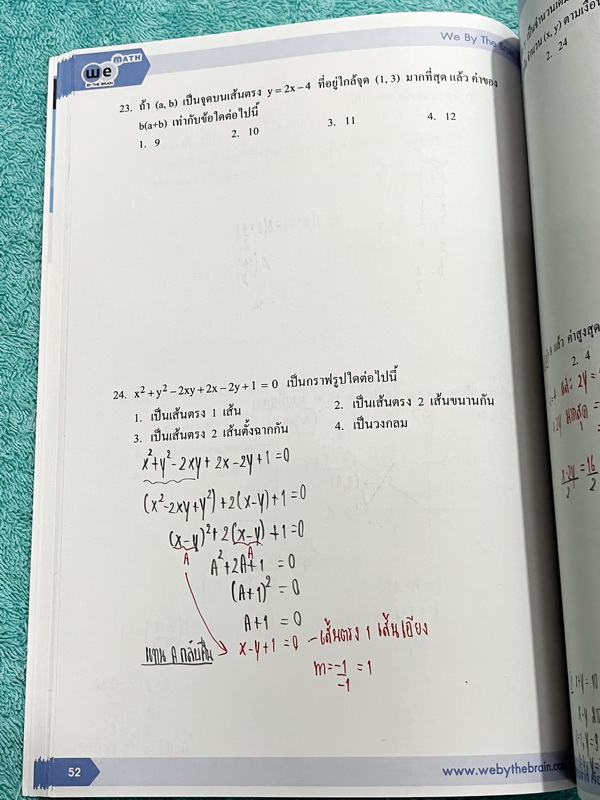 We By The Brain
MATH
we
BY THE BRAIN
23. ถ้า (a, b) เป็นจุดบนเส้นตรง y = 2x – 4 ที่อยู่ใกล้จุด (1, 3) มากที่สุด แล้ว ค่าของ
b(a+b) เท่ากับข้อใดต่อไปนี้
1. 9 2. 10 3. 11 4. 12
24. x² + y² – 2xy + 2x – 2y + 1 = 0 เป็นกราฟรูปใดต่อไปนี้
1. เป็นเส้นตรง 1 เส้น 2. เป็นเส้นตรง 2 เส้นขนานกัน
3. เป็นเส้นตรง 2 เส้นตั้งฉากกัน 4. เป็นวงกลม
x²+y²-2xy+2x-2y+1=0
(x²-2xy+y²)+2(x-y)+1=0
(x-y)²+2(x-y)+1=0
A A
A²+2A+1 =0
(A+1)² =0
A+1 =0
แทน A กลับคืน x-y+1=0 -เส้นตรง 1 เส้นเอียง
m=-1/-1 =1
52
www.webythebrain.com
(x, y) ตามเงื่อน
2. 24
แล้ว ค่าสูงสุด
2. 4
x-2y/2 = 16/2
x+y = 10